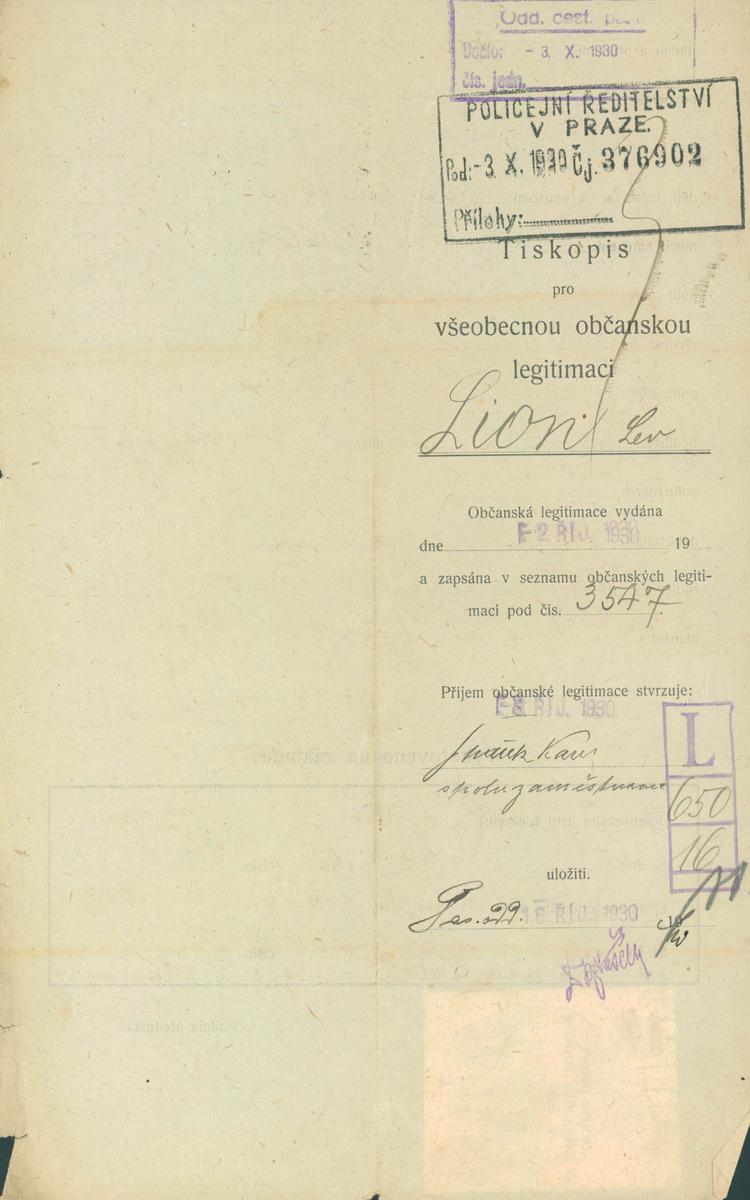 Odd. cest.
Došlo: - 3. X. 1930
čís. jedn.
POLICEJNÍ ŘEDITELSTVÍ
V PRAZE.
Pod: -3. X. 1930 Čj. 376902
Přílohy:
Tiskopis
pro
všeobecnou občanskou
legitimaci
Lion Lev
Občanská legitimace vydána
dne -2 ŘÍJ. 1930 19
a zapsána v seznamu občanských legiti-
mací pod čís. 3547
Příjem občanské legitimace stvrzuje:
-8 ŘÍJ. 1930
spoluzaměstnanec
L
650
16
uložiti.
16 ŘÍJ. 1930 19